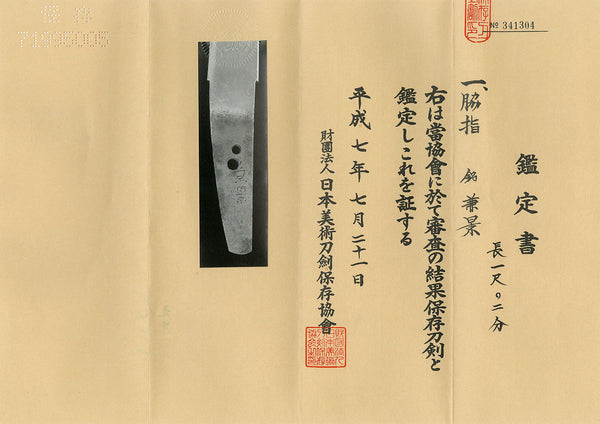 № 341304
鑑定書
一、脇指 銘 兼景
長一尺〇二分
右は當協會に於て審査の結果保存刀剣と
鑑定しこれを証する
平成七年七月二十一日
財團法人 日本美術刀劍保存協會
兼景